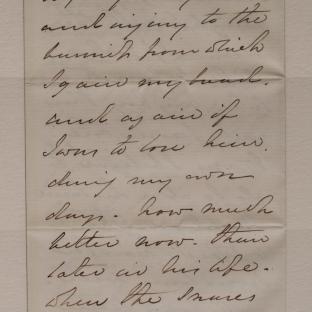 and injury to the
business from which
I gain my bread.
and again if
I was to lose him.
during my own
days. how much
better now. than
later in his life.
when the snares